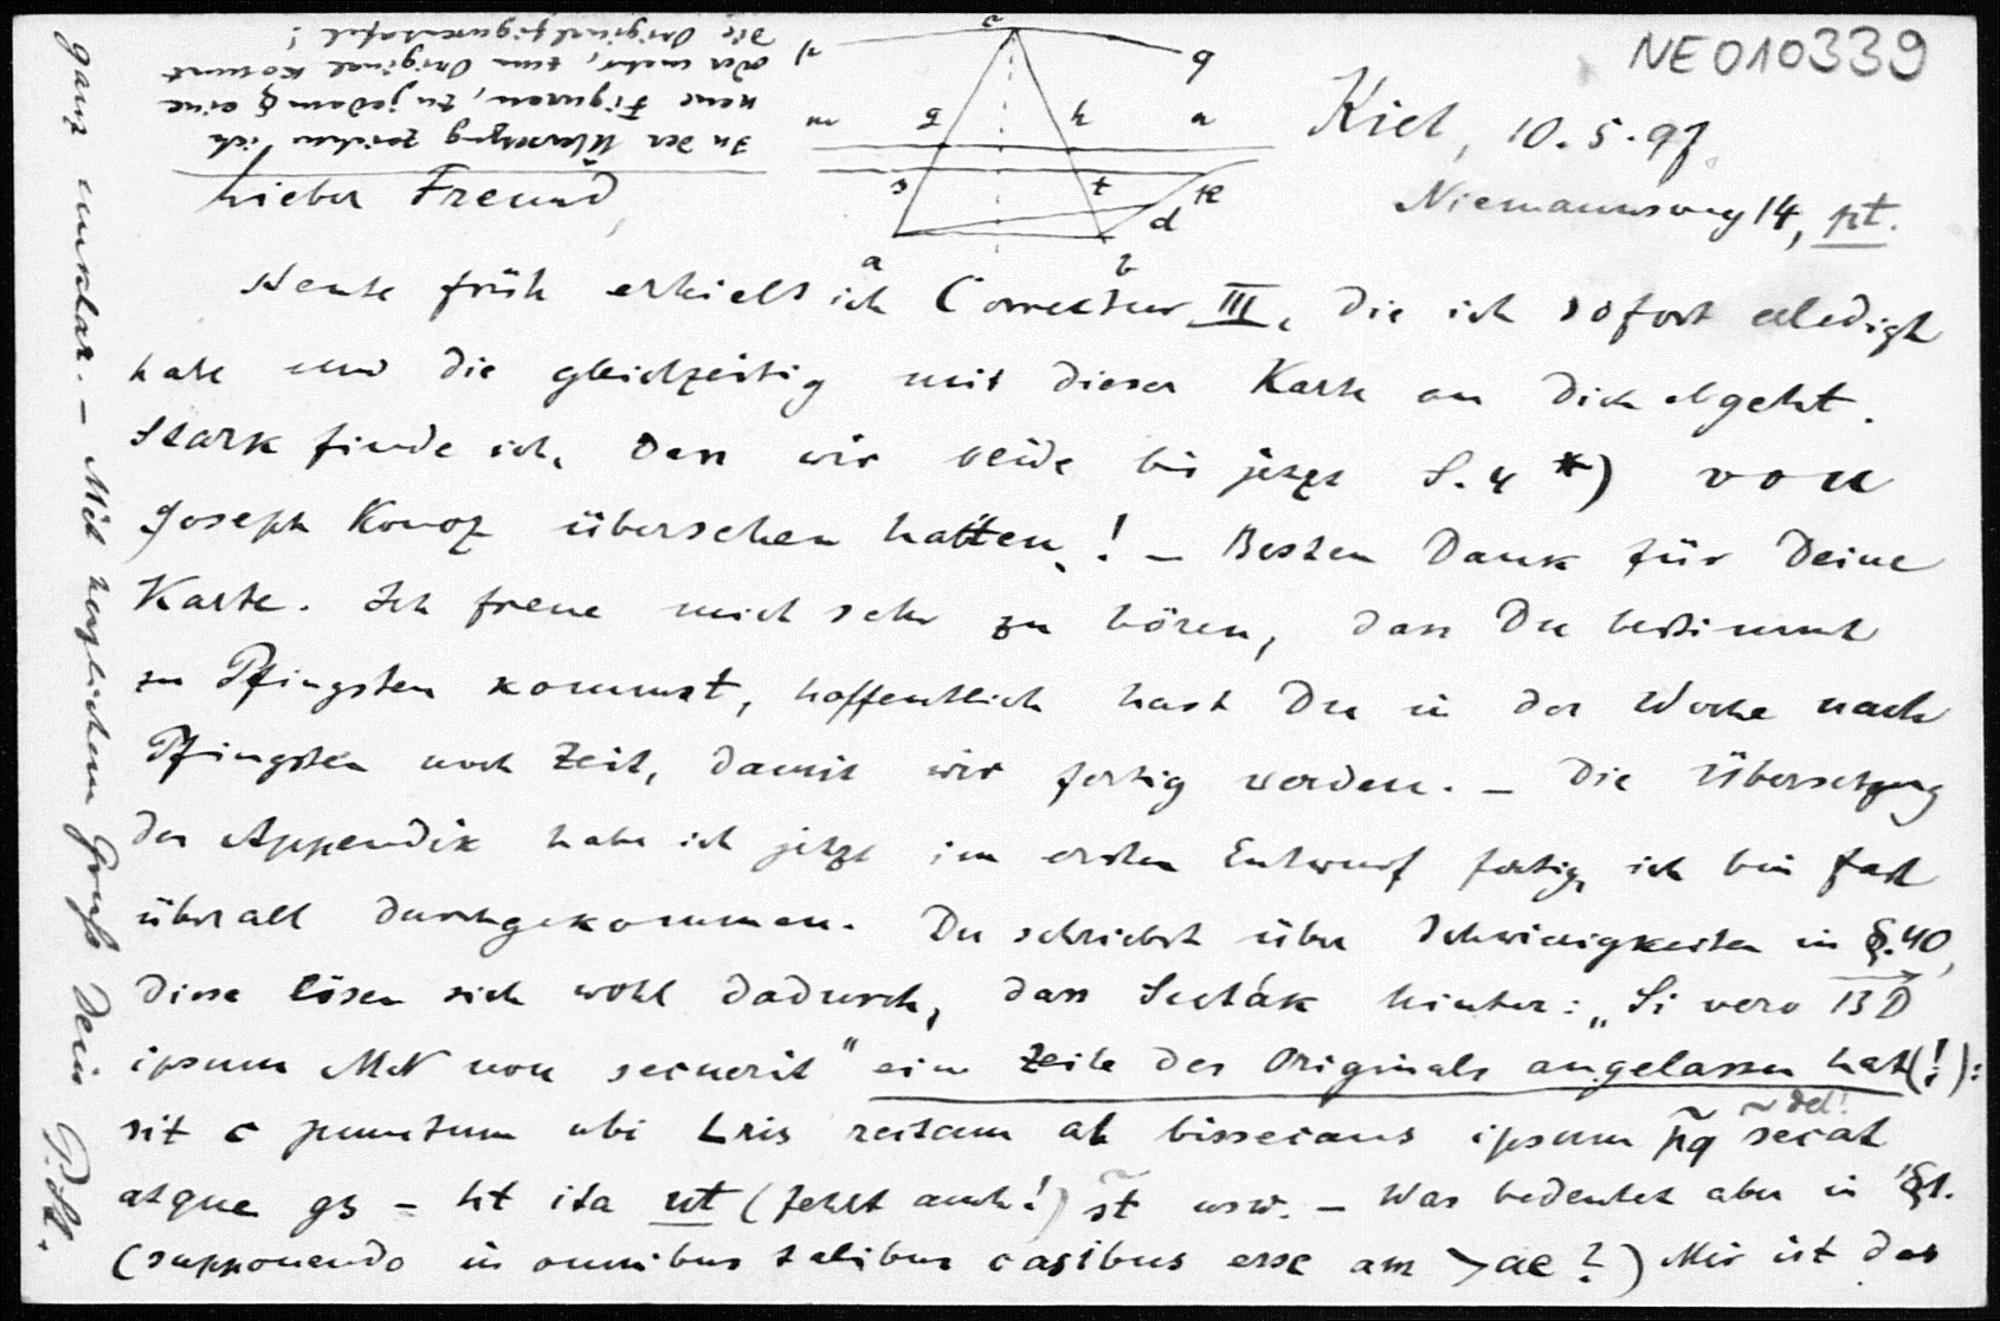 NE010339
Kiel, 10.5.97.
Niemannsweg 14, pt.
In der Übersetzung zeichne ich
neue Figuren, zu jedem § eine
oder mehr, zum Original kommt
die Originalfigurentafel!
q
m g h n
s t k
d
a b
Lieber Freund,
Heute früh erhielt ich Correctur III, die ich sofort erledigt
habe und die gleichzeitig mit dieser Karte an Dich abgeht.
Stark finde ich, dass wir beide bis jetzt S. 4 *) von
Joseph Konoz übersehen hatten! – Besten Dank für Deine
Karte. Ich freue mich sehr zu hören, dass Du bestimmt
zu Pfingsten kommst, hoffentlich hast Du in der Woche nach
Pfingsten noch Zeit, damit wir fertig werden. – Die Übersetzung
des Appendix habe ich jetzt im ersten Entwurf fertig, ich bin fast
überall durchgekommen. Du schriebst über Schwierigkeiten in §. 40,
diese lösen sich wohl dadurch, dass Suták hinter: „Si vero BD
ipsum MN non secuerit" eine Zeile des Originals ausgelassen hat(!):
sit c punctum ubi Lris rectam ab bissecans ipsum pq secat
del!
atque gs = ht ita ut (fehlt auch!) st usw. – Was bedeutet aber in §1.
(supponendo in omnibus talibus casibus esse am > ac?) Mir ist das
ganz unklar. – Mit herzlichem Gruß Dein P. St.